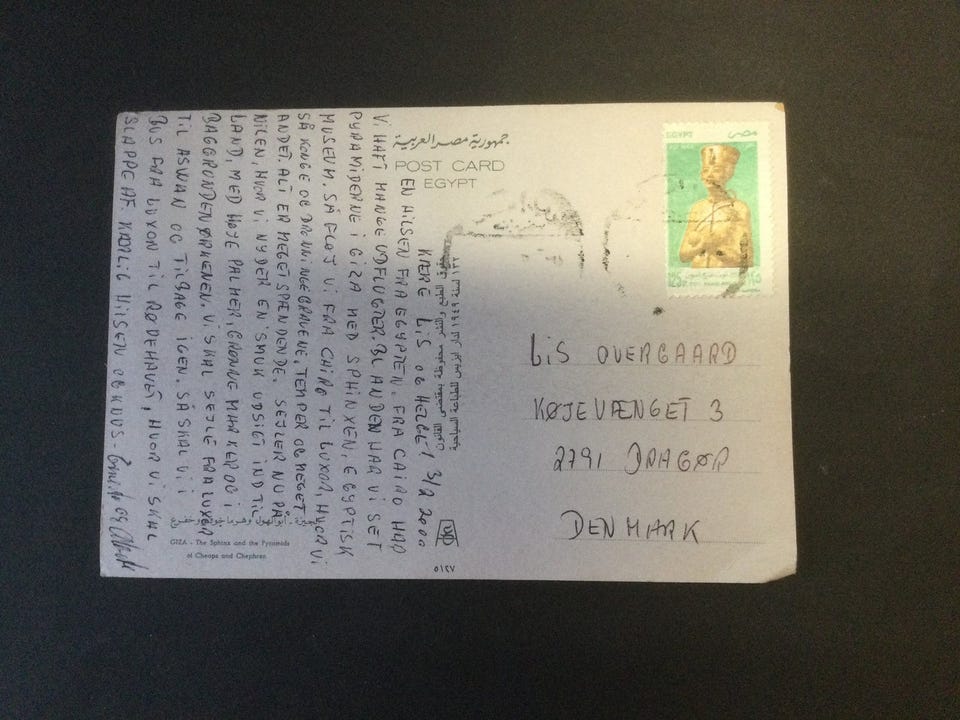 جمهورية مصر العربية
POST CARD
EGYPT
EGYPT
مصر
125
١٢٥
KÆRE LIS OG HELGE! 3/2 2000
EN HILSEN FRA EGYPTEN. FRA CAIRO HAR
VI HAFT MANGE UDFLUGTER. BL ANDEN HAR VI SET
PYRAMIDERNE I GIZA MED SPHINXEN, EGYPTISK
MUSEUM. SÅ FLØJ VI FRA CAIRO TIL LUXOR, HVOR VI
SÅ KONGE OG DRONNINGEGRAVENE, TEMPER OG MEGET
ANDET. ALT ER MEGET SPÆNDENDE. SEJLER NU PÅ
NILEN, HVOR VI NYDER EN SMUK UDSIGT IND TIL
LAND, MED HØJE PALMER, GRØNNE MARKER OG I
BAGGRUNDEN ØRKENEN. VI SKAL SEJLE FRA LUXOR
TIL ASWAN OG TILBAGE IGEN. SÅ SKAL VI I
BUS FRA LUXOR TIL RØDEHAVET, HVOR VI SKAL
SLAPPE AF KÆRLIG HILSEN OG KNUS -
LIS OVERGAARD
KØJEVÆNGET 3
2791 DRAGØR
DENMARK
حقوق الطبع والنشر محفوظة بمقتضى القانون
١٣٢ لسنة ١٩٤٩ لدار ادريس للطباعة السياحية
الجيزة - أبو الهول وهرما خوفو وخفرع
GIZA - The Sphinx and the Pyramids
of Cheops and Chephren
٥١٢٧